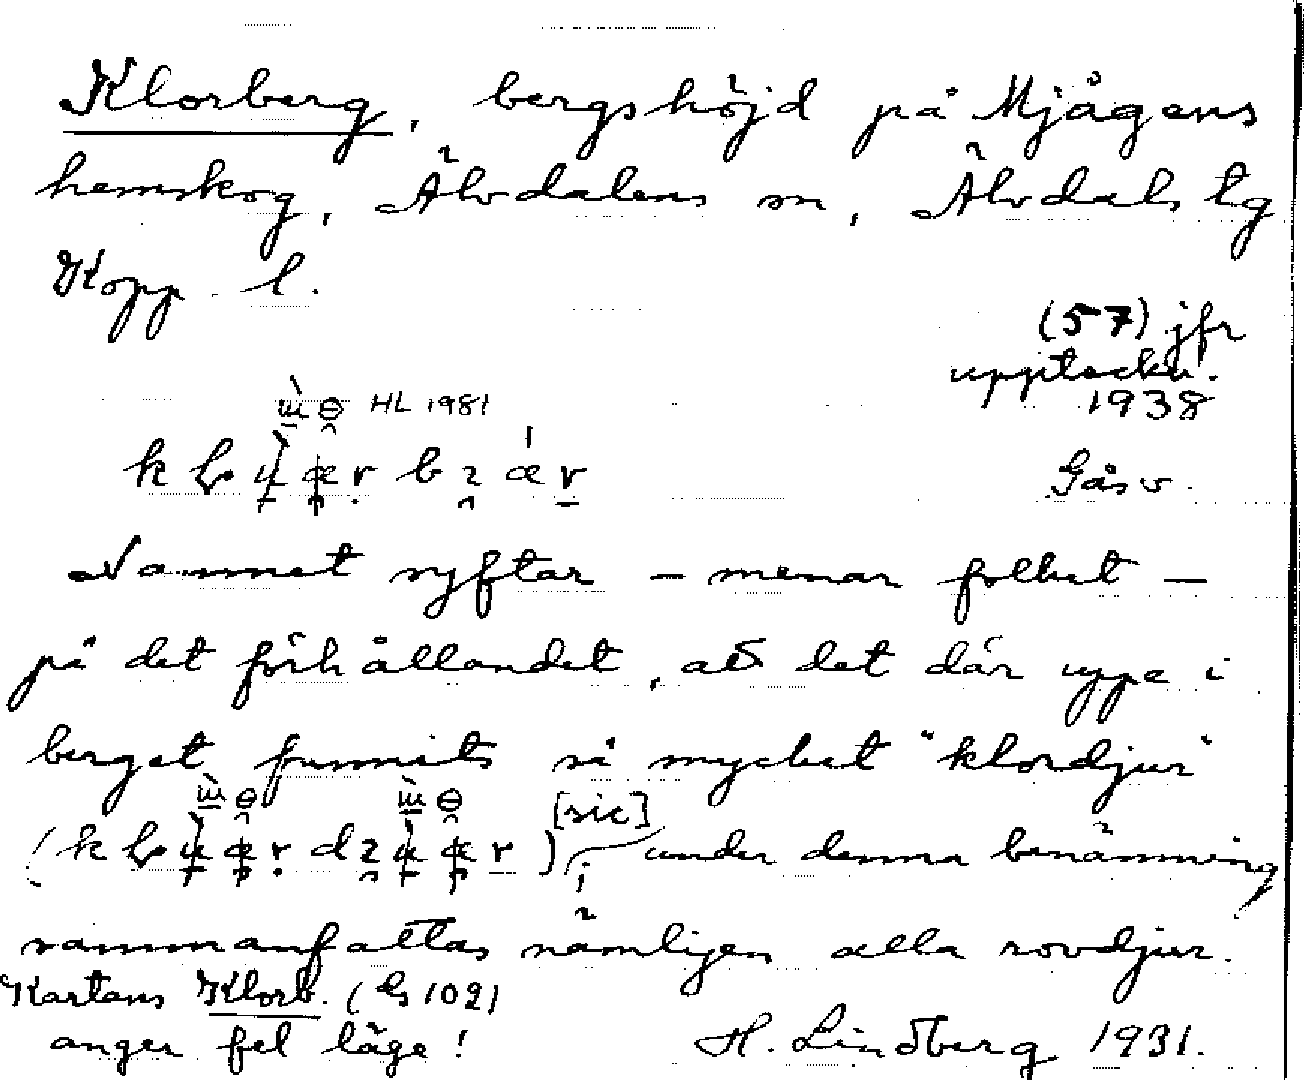 Klorberg, bergshöjd på Mjågens
hemskog, Älvdalens sn, Älvdals tg
Kopp. l.
(57) jfr
uppteckn.
1938
HL 1981
Gåsv.
Namnet syftar – menar folket –
på det förhållandet, att det där uppe i
berget funnits så mycket "klordjur"
[sic]
under denna benämning
sammanfattas nämligen alla rovdjur.
Kartans Klorb. (bs 102)
anger fel läge!
H. Lindberg 1931.